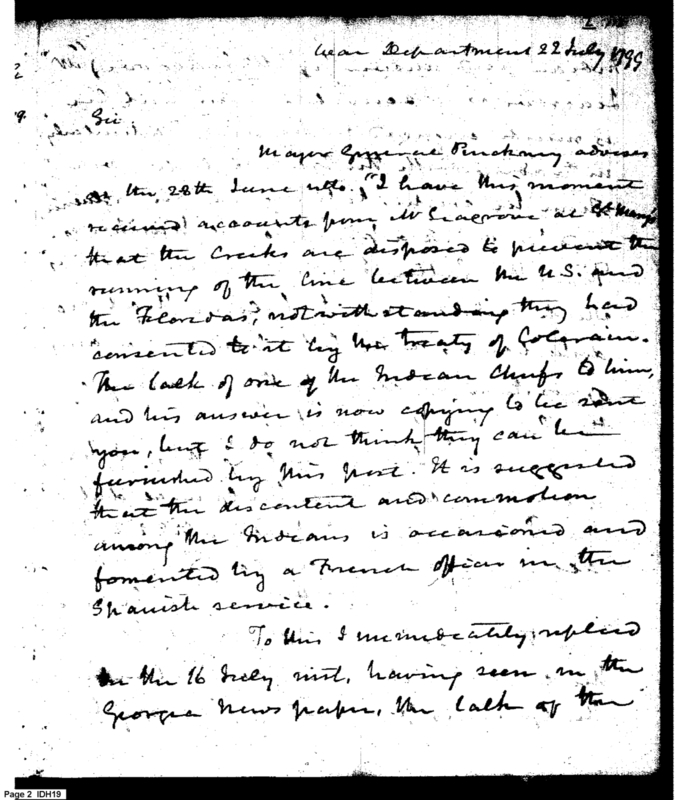 War Department 22 July 1799
Sir
Major General Pinckney advises
the 28th June ulto. "I have this moment
received accounts from Mr Seagrove at St Mary's
that the Creeks are disposed to prevent the
running of the line between the U.S. and
the Floridas, notwithstanding they had
consented to it by the treaty of Colerain.
The talk of one of the Indian Chiefs to him,
and his answer is now copying to be sent
you, but I do not think they can be
furnished by this post. It is suggested
that the discontent and commotion
among the Indians is occasioned and
fomented by a French officer in the
Spanish service.
To this I immediately replied
on the 16 July inst, having seen in the
Georgia News paper, the talk of the
Page 2 IDH19